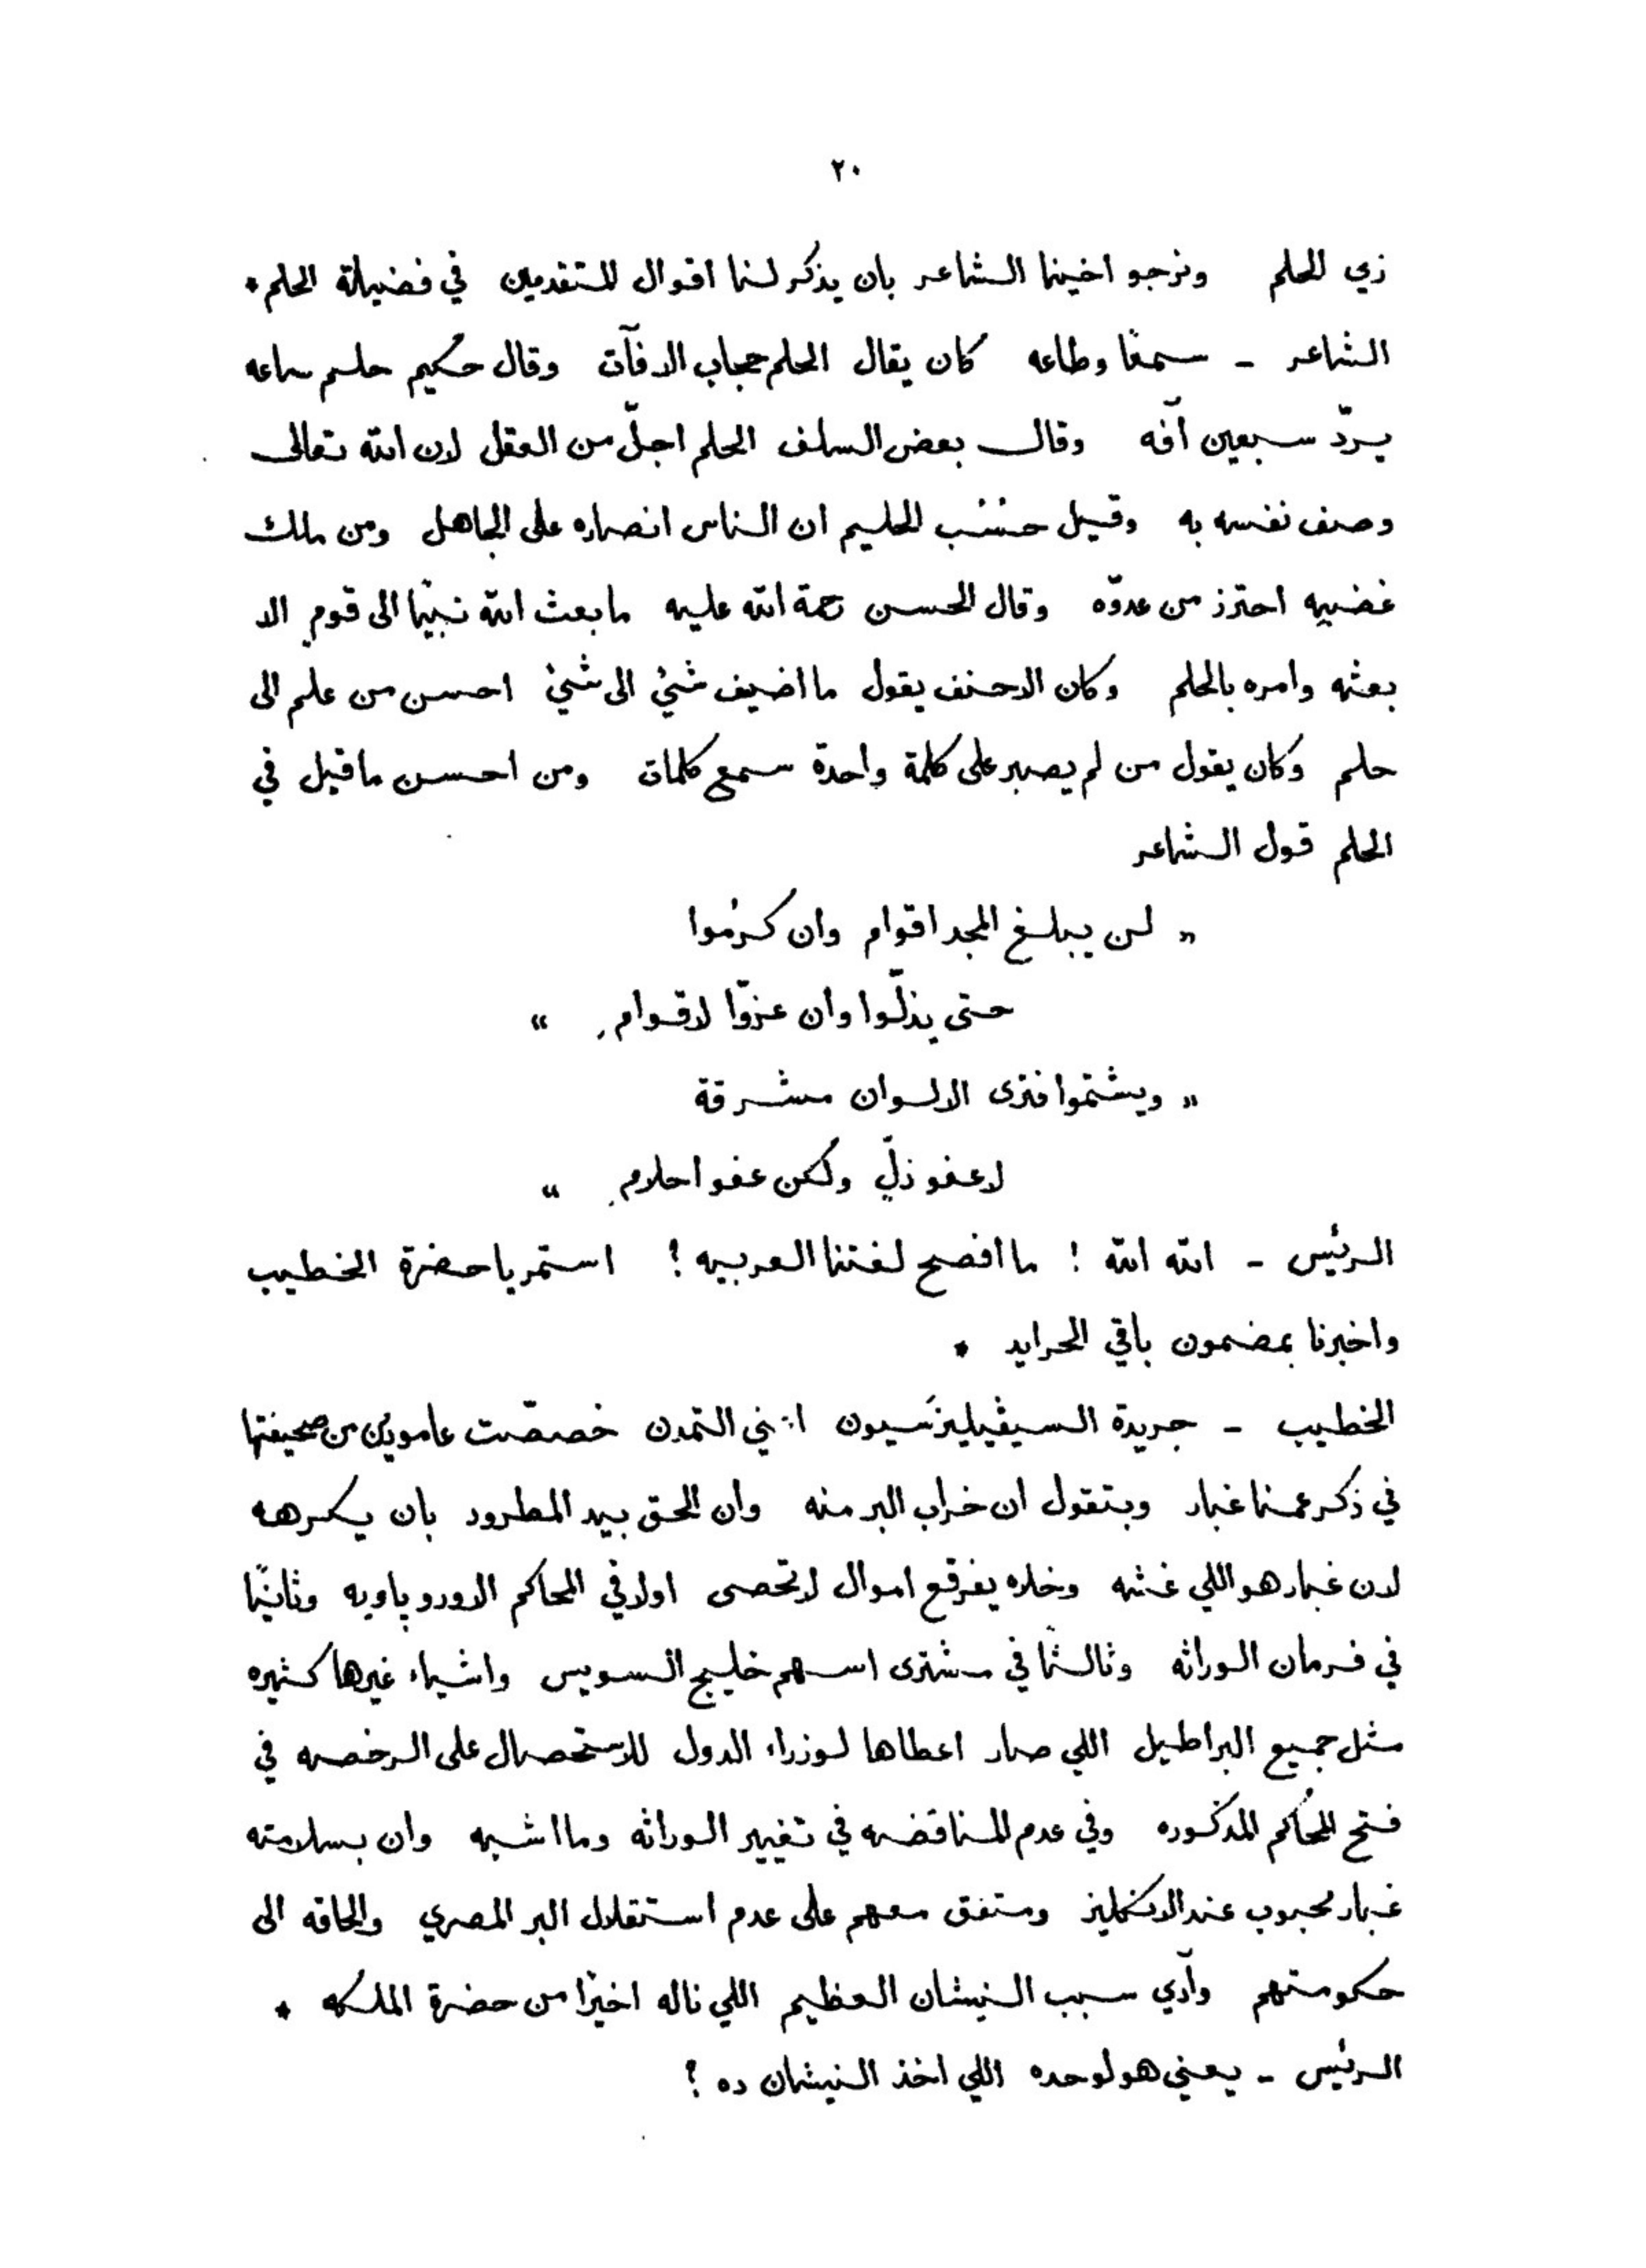 ٢٠
زي الحلم ونرجو اخينا الشاعر بان يذكر لنا اقوال المتقدمين في فضيلة الحلم *
الشاعر - سمعًا وطاعه كان يقال الحلم حجاب الافآت وقال حكيم حلم ساعه
يردّ سبعين آفه وقال بعض السلف الحلم اجلّ من العقل لان الله تعالى
وصف نفسه به وقيل حسْب الحليم ان الناس انصاره على الجاهل ومن ملك
غضبه احترز من عدوّه وقال الحسن رحمة الله عليه ما بعث الله نبيًّا الى قومٍ الا
بعثه وامره بالحلم وكان الاحنف يقول ما اضيف شئ الى شئ احسن من علم الى
حلم وكان يقول من لم يصبر على كلمة واحدة سمع كلمات ومن احسن ما قيل في
الحلم قول الشاعر
" لن يبلغ المجد اقوام وان كرُموا
حتى يذلّوا وان عزّوا لاقوامِ "
" ويشتموا فترى الالوان مشرقة
لا عفو ذلٍّ ولكن عفو احلامِ "
الرئيس - الله الله ! ما أفصح لغتنا العربيه ! استمر يا حضرة الخطيب
واخبرنا بمضمون باقي الجرايد *
الخطيب - جريدة السيڤيليزَسيون اعني التمدن خصصّت عامودين من صحيفتها
في ذكر عمنا غبار وبتقول ان خراب البر منه وان الحق بيد المطرود بان يكرهه
لان غبار هو اللي غشه وخلاه يفرقع اموال لا تحصى اولا في المحاكم الاوروباويه وثانيًا
في فرمان الوراثه وثالثًا في مشترى اسهم خليج السويس واشياء غيرها كثيره
مثل جميع البراطيل اللي صار اعطاها لوزراء الدول للاستحصال على الرخصه في
فتح المحاكم المذكوره وفي عدم المناقضه في تغيير الوراثه وما اشبه وان بسلامته
غبار محبوب عند الانكليز ومتفق معهم على عدم استقلال البر المصري والحاقه الى
حكومتهم وآدي سبب النيشان العظيم اللي ناله اخيرًا من حضرة الملكه *
الرئيس - يعني هو لوحده اللي اخذ النيشان ده ؟